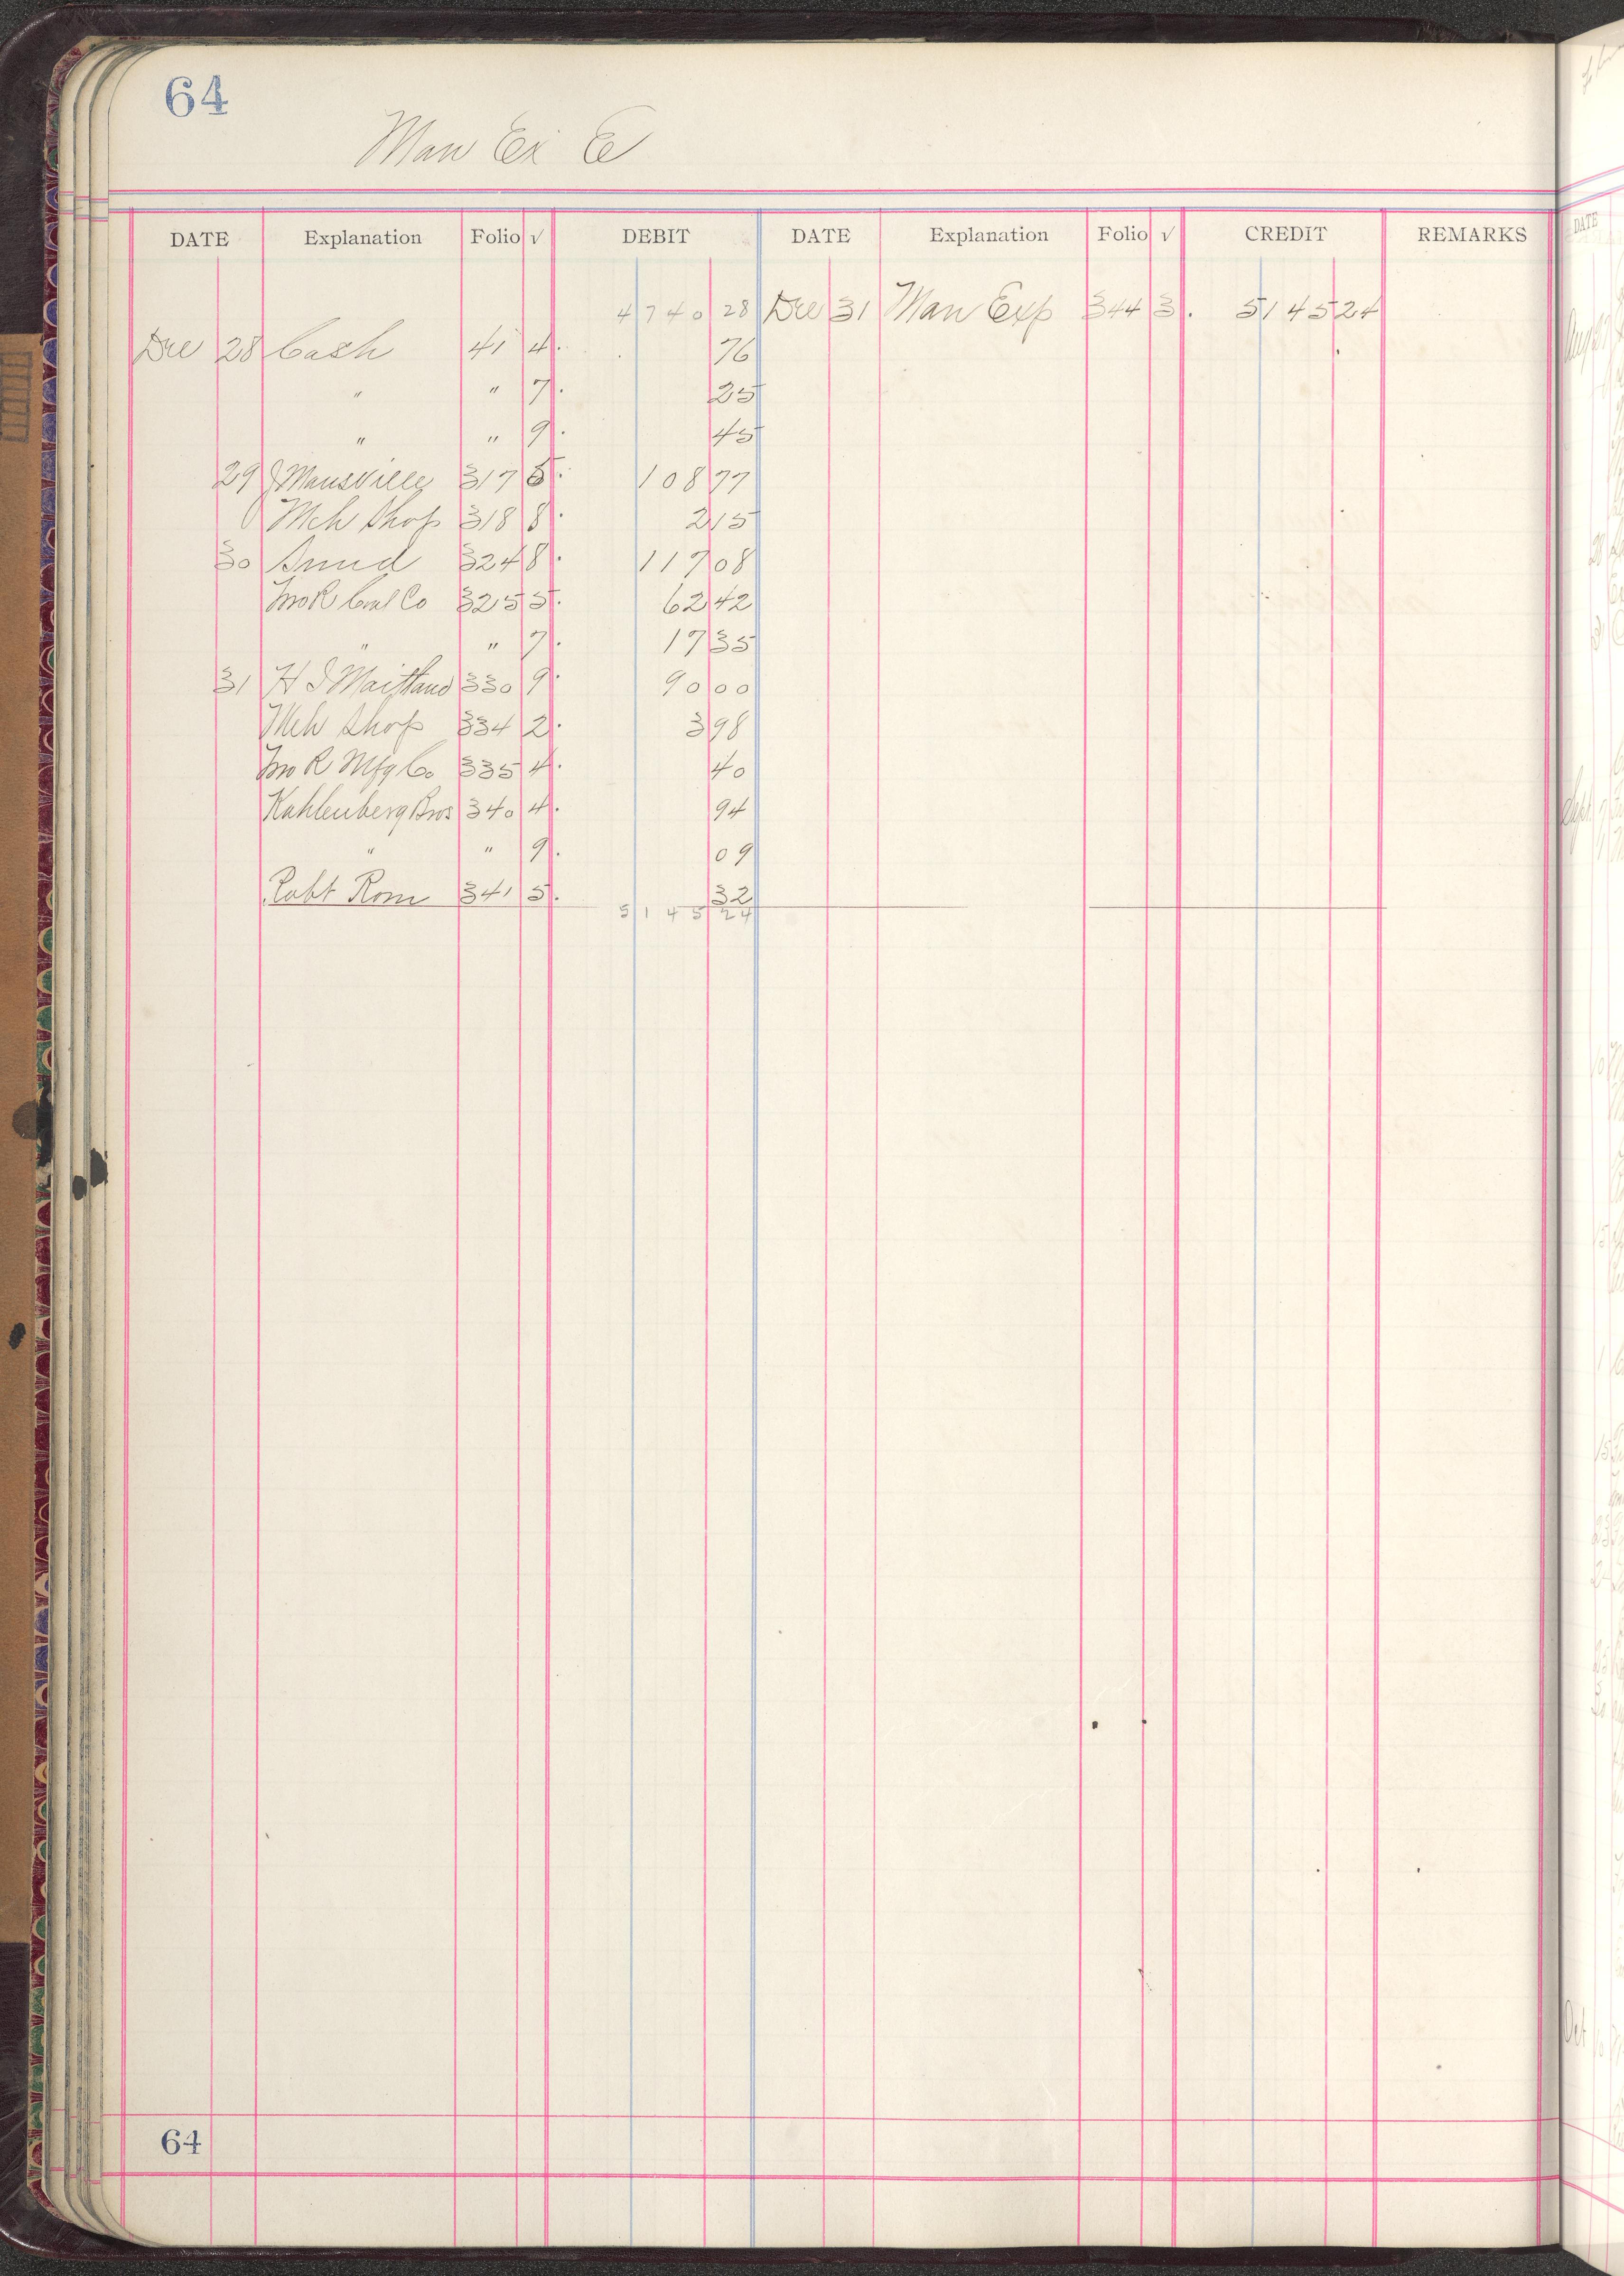 64
Man Ex E
DATE Explanation Folio √ DEBIT DATE Explanation Folio √ CREDIT REMARKS
4740 28 Dec 31 Man Exp 344 3. 5145 24
Dec 28 Cash 41 4. 76
" " 7. 25
" " 9. 45
29 J Mansville 317 5. 108 77
Mch Shop 318 8. 2 15
30 Sund 324 8. 117 08
Jno R Coal Co 325 5. 62 42
" " 7. 17 35
31 H I Maitland 330 9. 90 00
Mch Shop 334 2. 3 98
Jno R Mfg Co 335 4. 40
Kahlenberg Bros 340 4. 94
" " 9. 09
Robt Rom 341 5. 32
5145 24
64